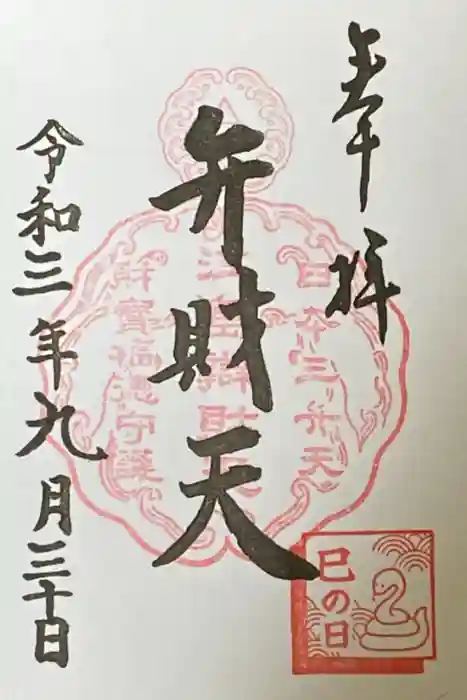 奉拝
日本三弁天
弁財天
江島辯財天
財寶福徳守護
令和三年九月三十日
巳の日